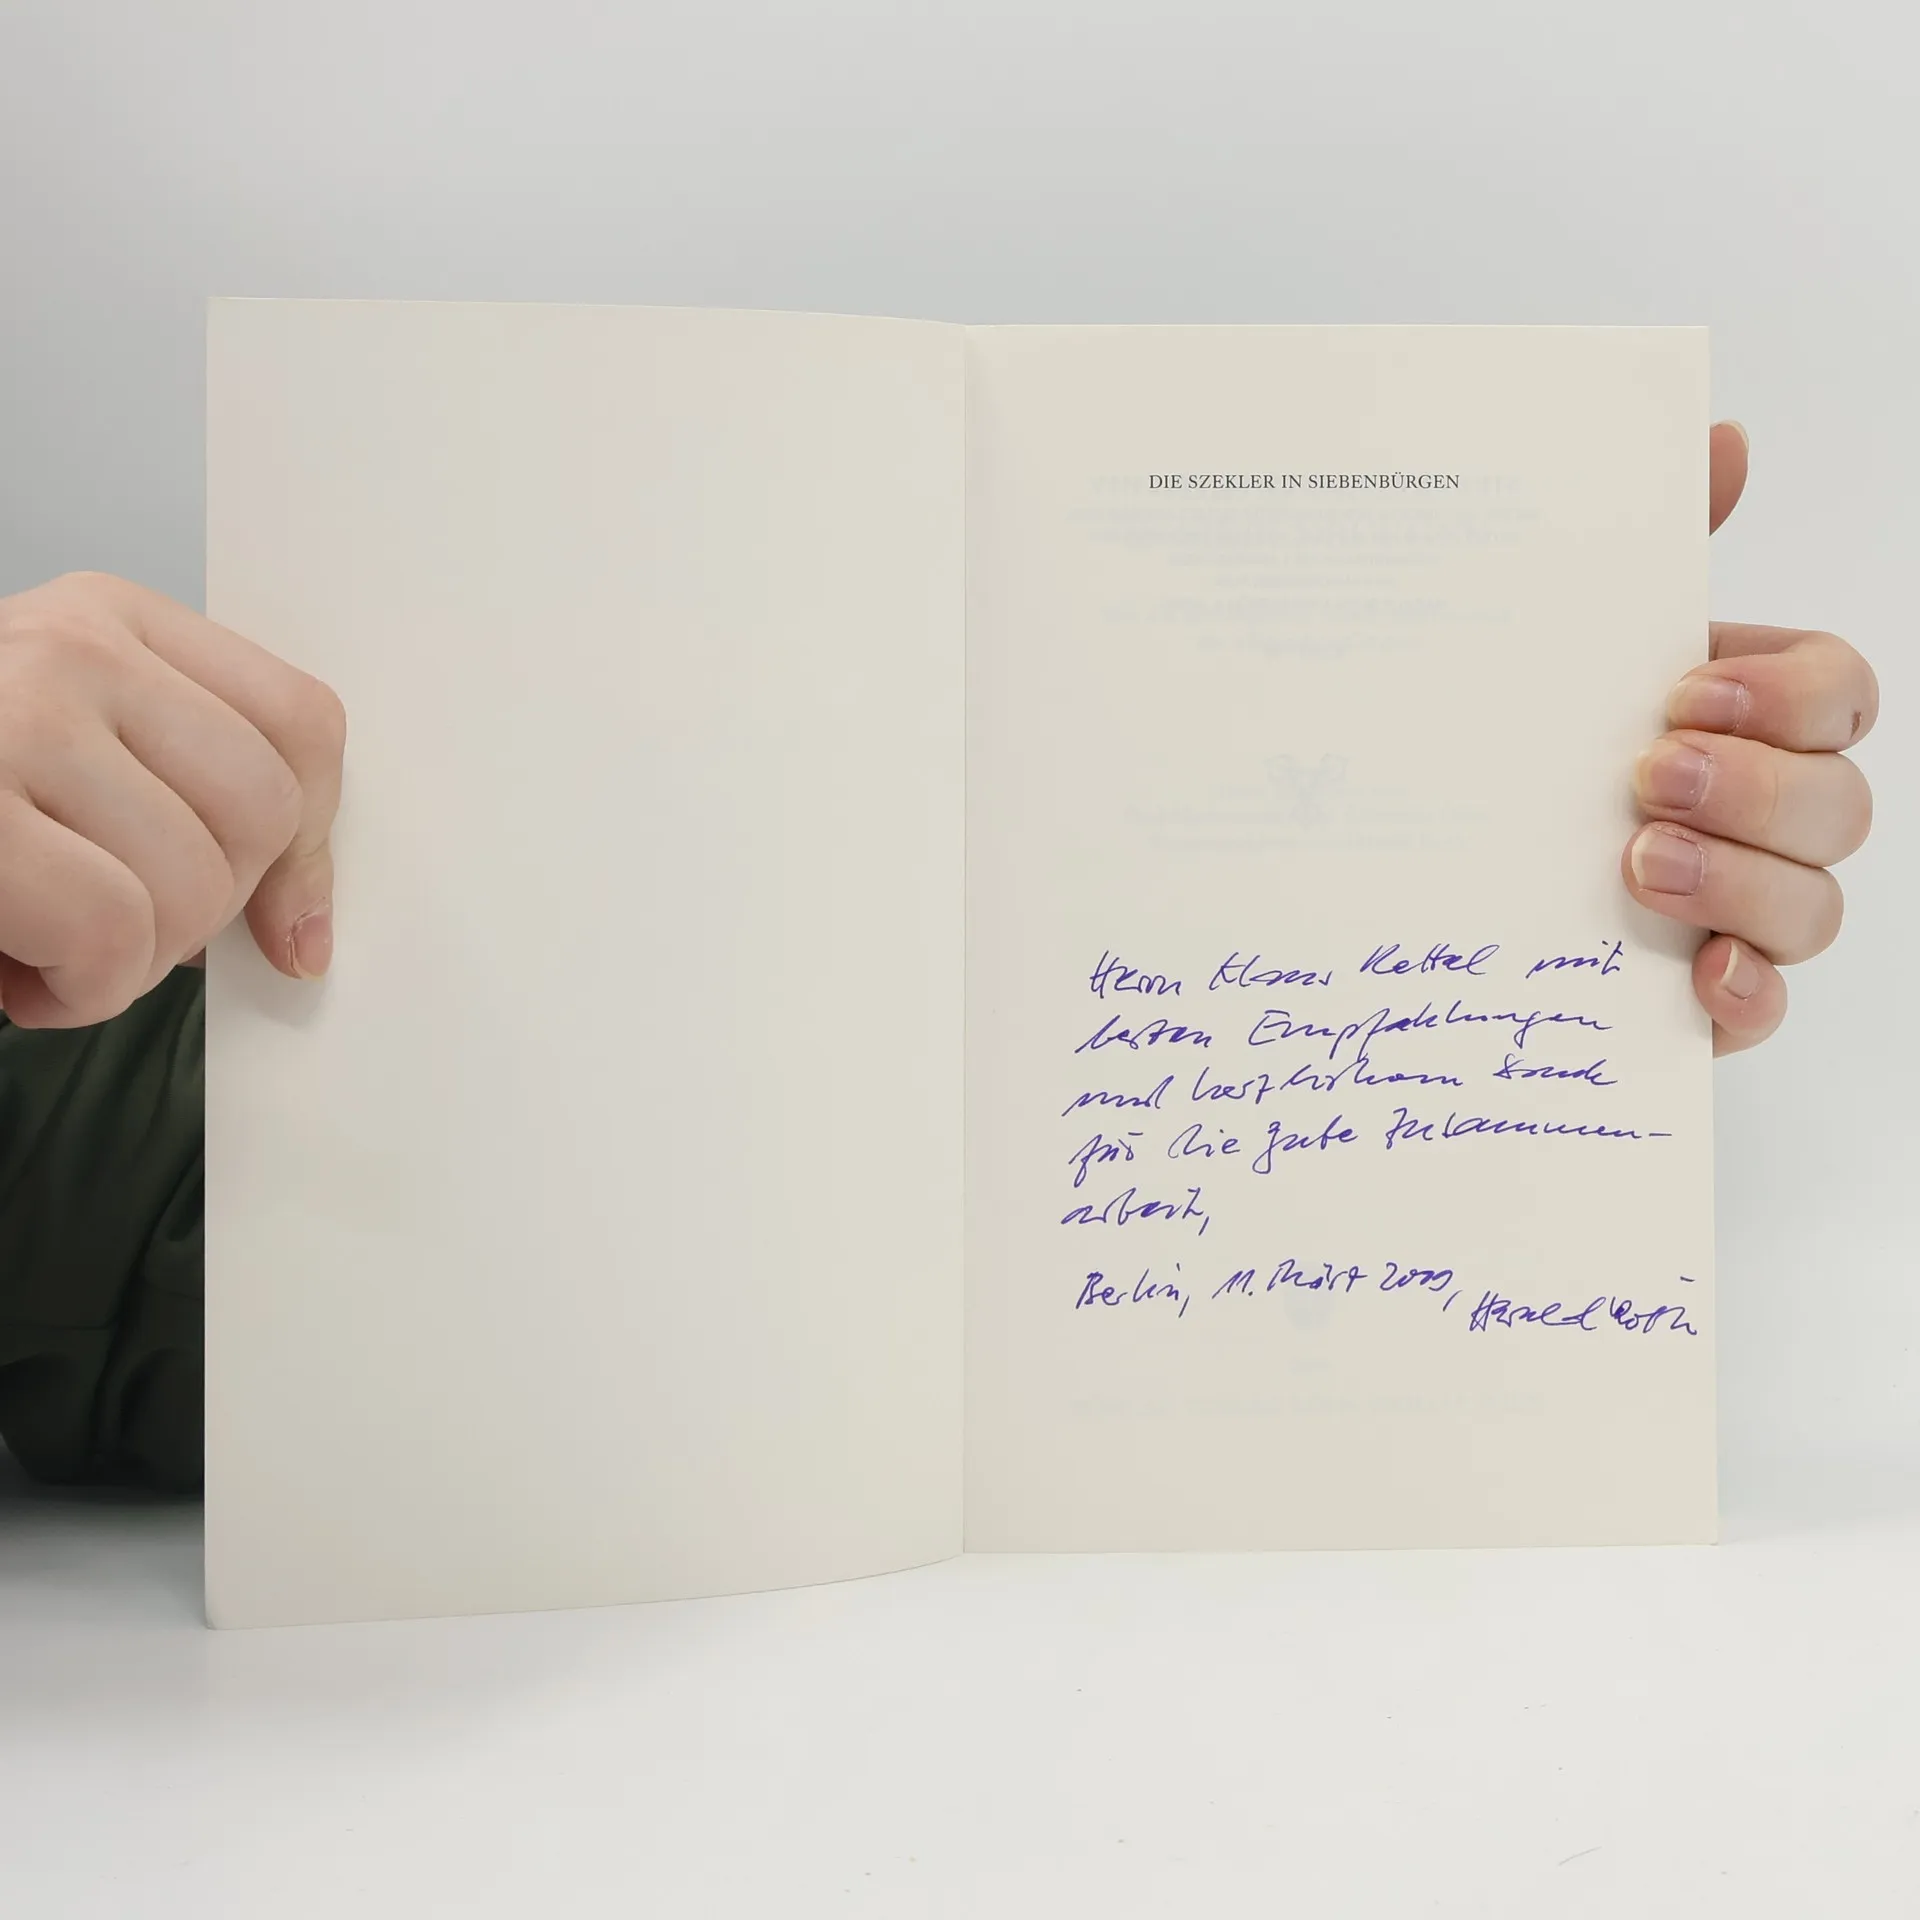 DIE SZEKLER IN SIEBENBÜRGEN
Herrn Klaus Rettel mit
besten Empfehlungen
und herzlichem Dank
für die gute Zusammen-
arbeit,
Berlin, 11. März 2009,
Harald Roth